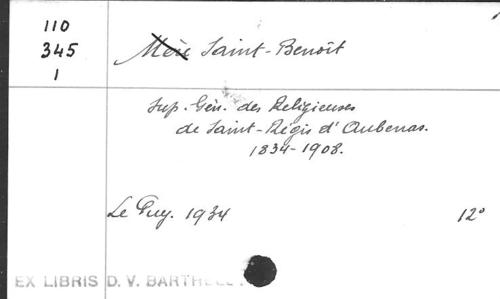 110
345
1
Mère Saint-Benoît
Sup. Gén. des Religieuses
de Saint-Régis d'Aubenas.
1834-1908.
Le Puy. 1934
12°
EX LIBRIS D. V.